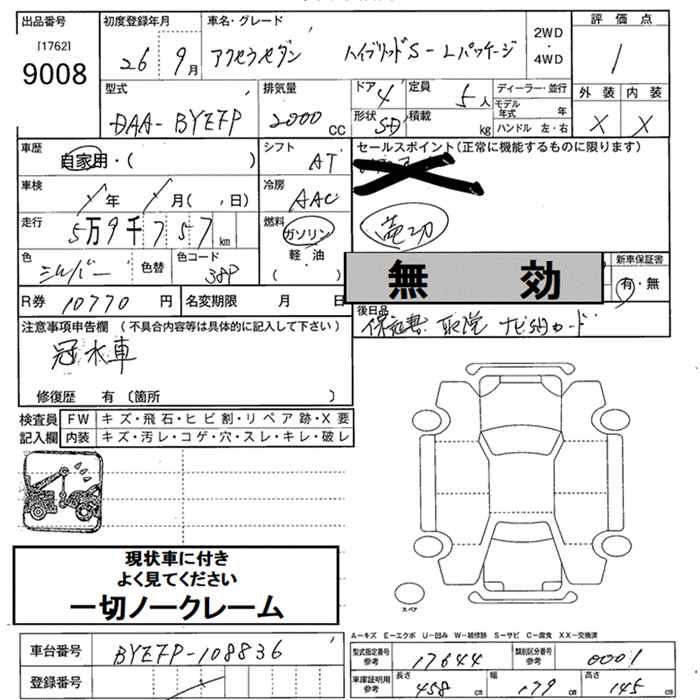 出品番号 初度登録年月 車名・グレード 評価点
[1762] 26 9月 アクセラセダン ハイブリッドS-Lパッケージ 2WD・4WD 1
9008
型式 排気量 ドア 4 定員 5人 ディーラー・並行 外装 内装
DAA-BYEFP 2000 CC 形状 SD 積載 kg モデル年式 年 X X
ハンドル 左・右
車歴 シフト セールスポイント(正常に機能するものに限ります)
自家用・( ) AT
車検 冷房
年 月( 、日) AAC
走行 燃料
5万9千757km ガソリン
色 色替 色コード 軽油 無効 新車保証書
シルバー 38P ( ) 有・無
R券 10770円 名変期限 月 日 後日品
注意事項申告欄 (不具合内容等は具体的に記入して下さい) 保証書 取説 ナビSDカード
冠水車
修復歴 有(箇所 )
検査員 FW キズ・飛石・ヒビ割・リペア跡・X要
記入欄 内装 キズ・汚レ・コゲ・穴・スレ・キレ・破レ
現状車に付き
よく見てください
一切ノークレーム
スペア
A-キズ E-エクボ U-凹み W-補修跡 S-サビ C-腐食 XX-交換済
車台番号 BYEFP-108836 型式指定番号 参考 17644 類別区分番号 参考 0001
登録番号 車庫証明用 参考 長さ 458cm 幅 179cm 高さ 145cm